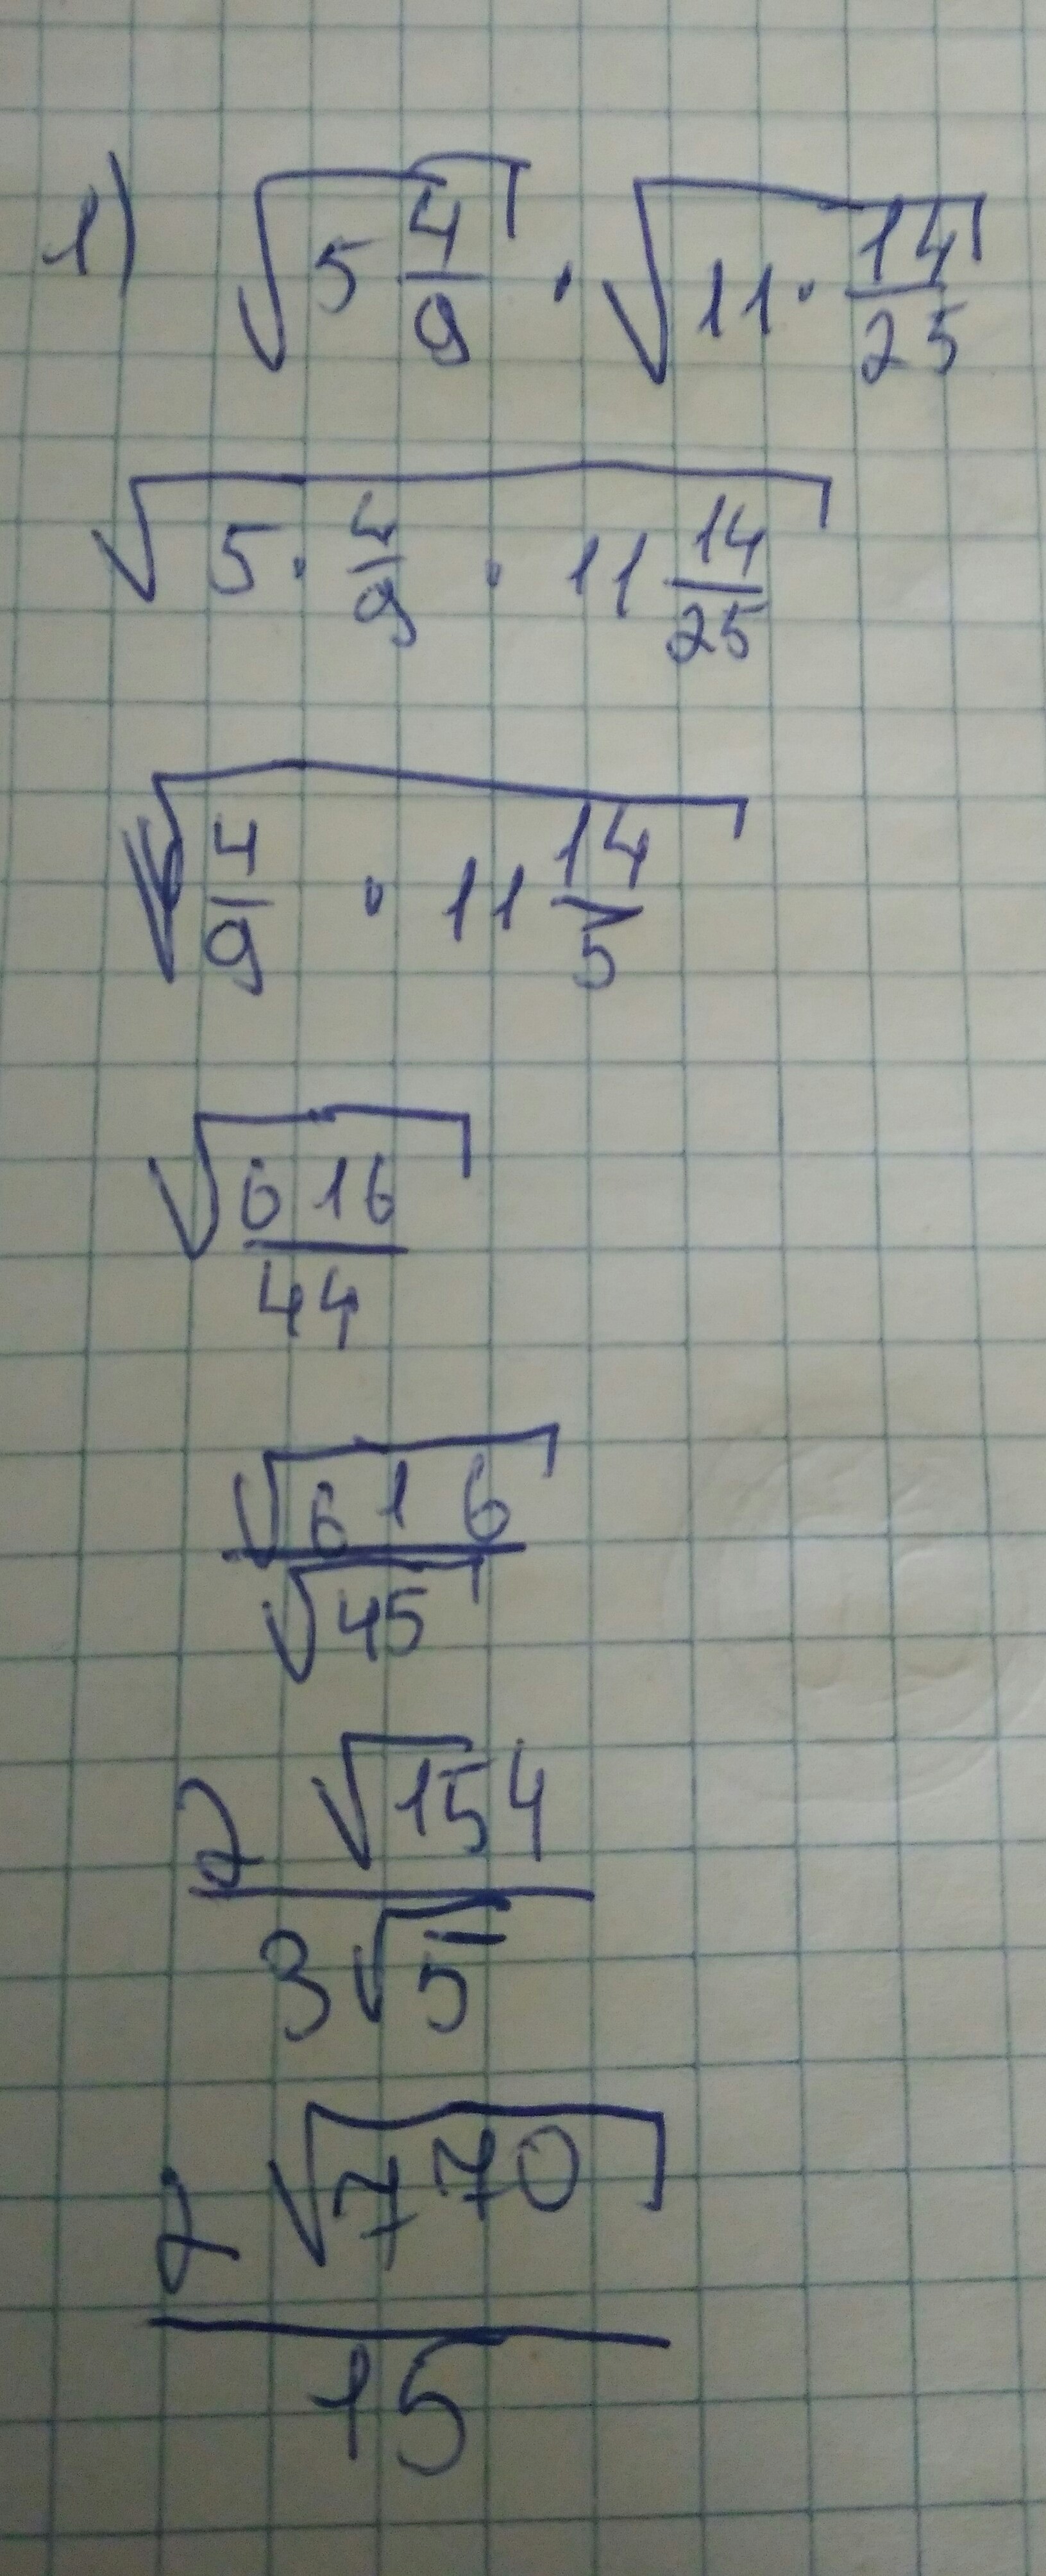 1) √(5 4/9) · √(11 · 14/25)
√(5 · 4/9 · 11 14/25)
√(4/9 · 11 14/5)
√(616/44)
√616/√45
2√154/3√5
2√770/15